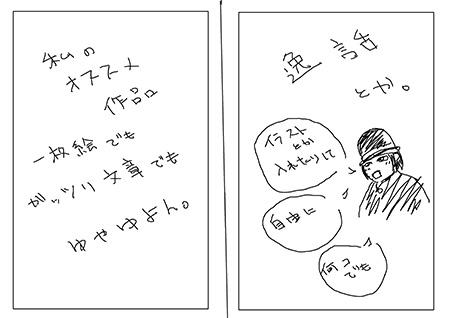 私の
オススメ
作品
一枚絵でも
ガッツリ文章でも
ゆやゆよん。
逸話
とか。
イラスト
とか
入れたりして
自由に
何コ
でも